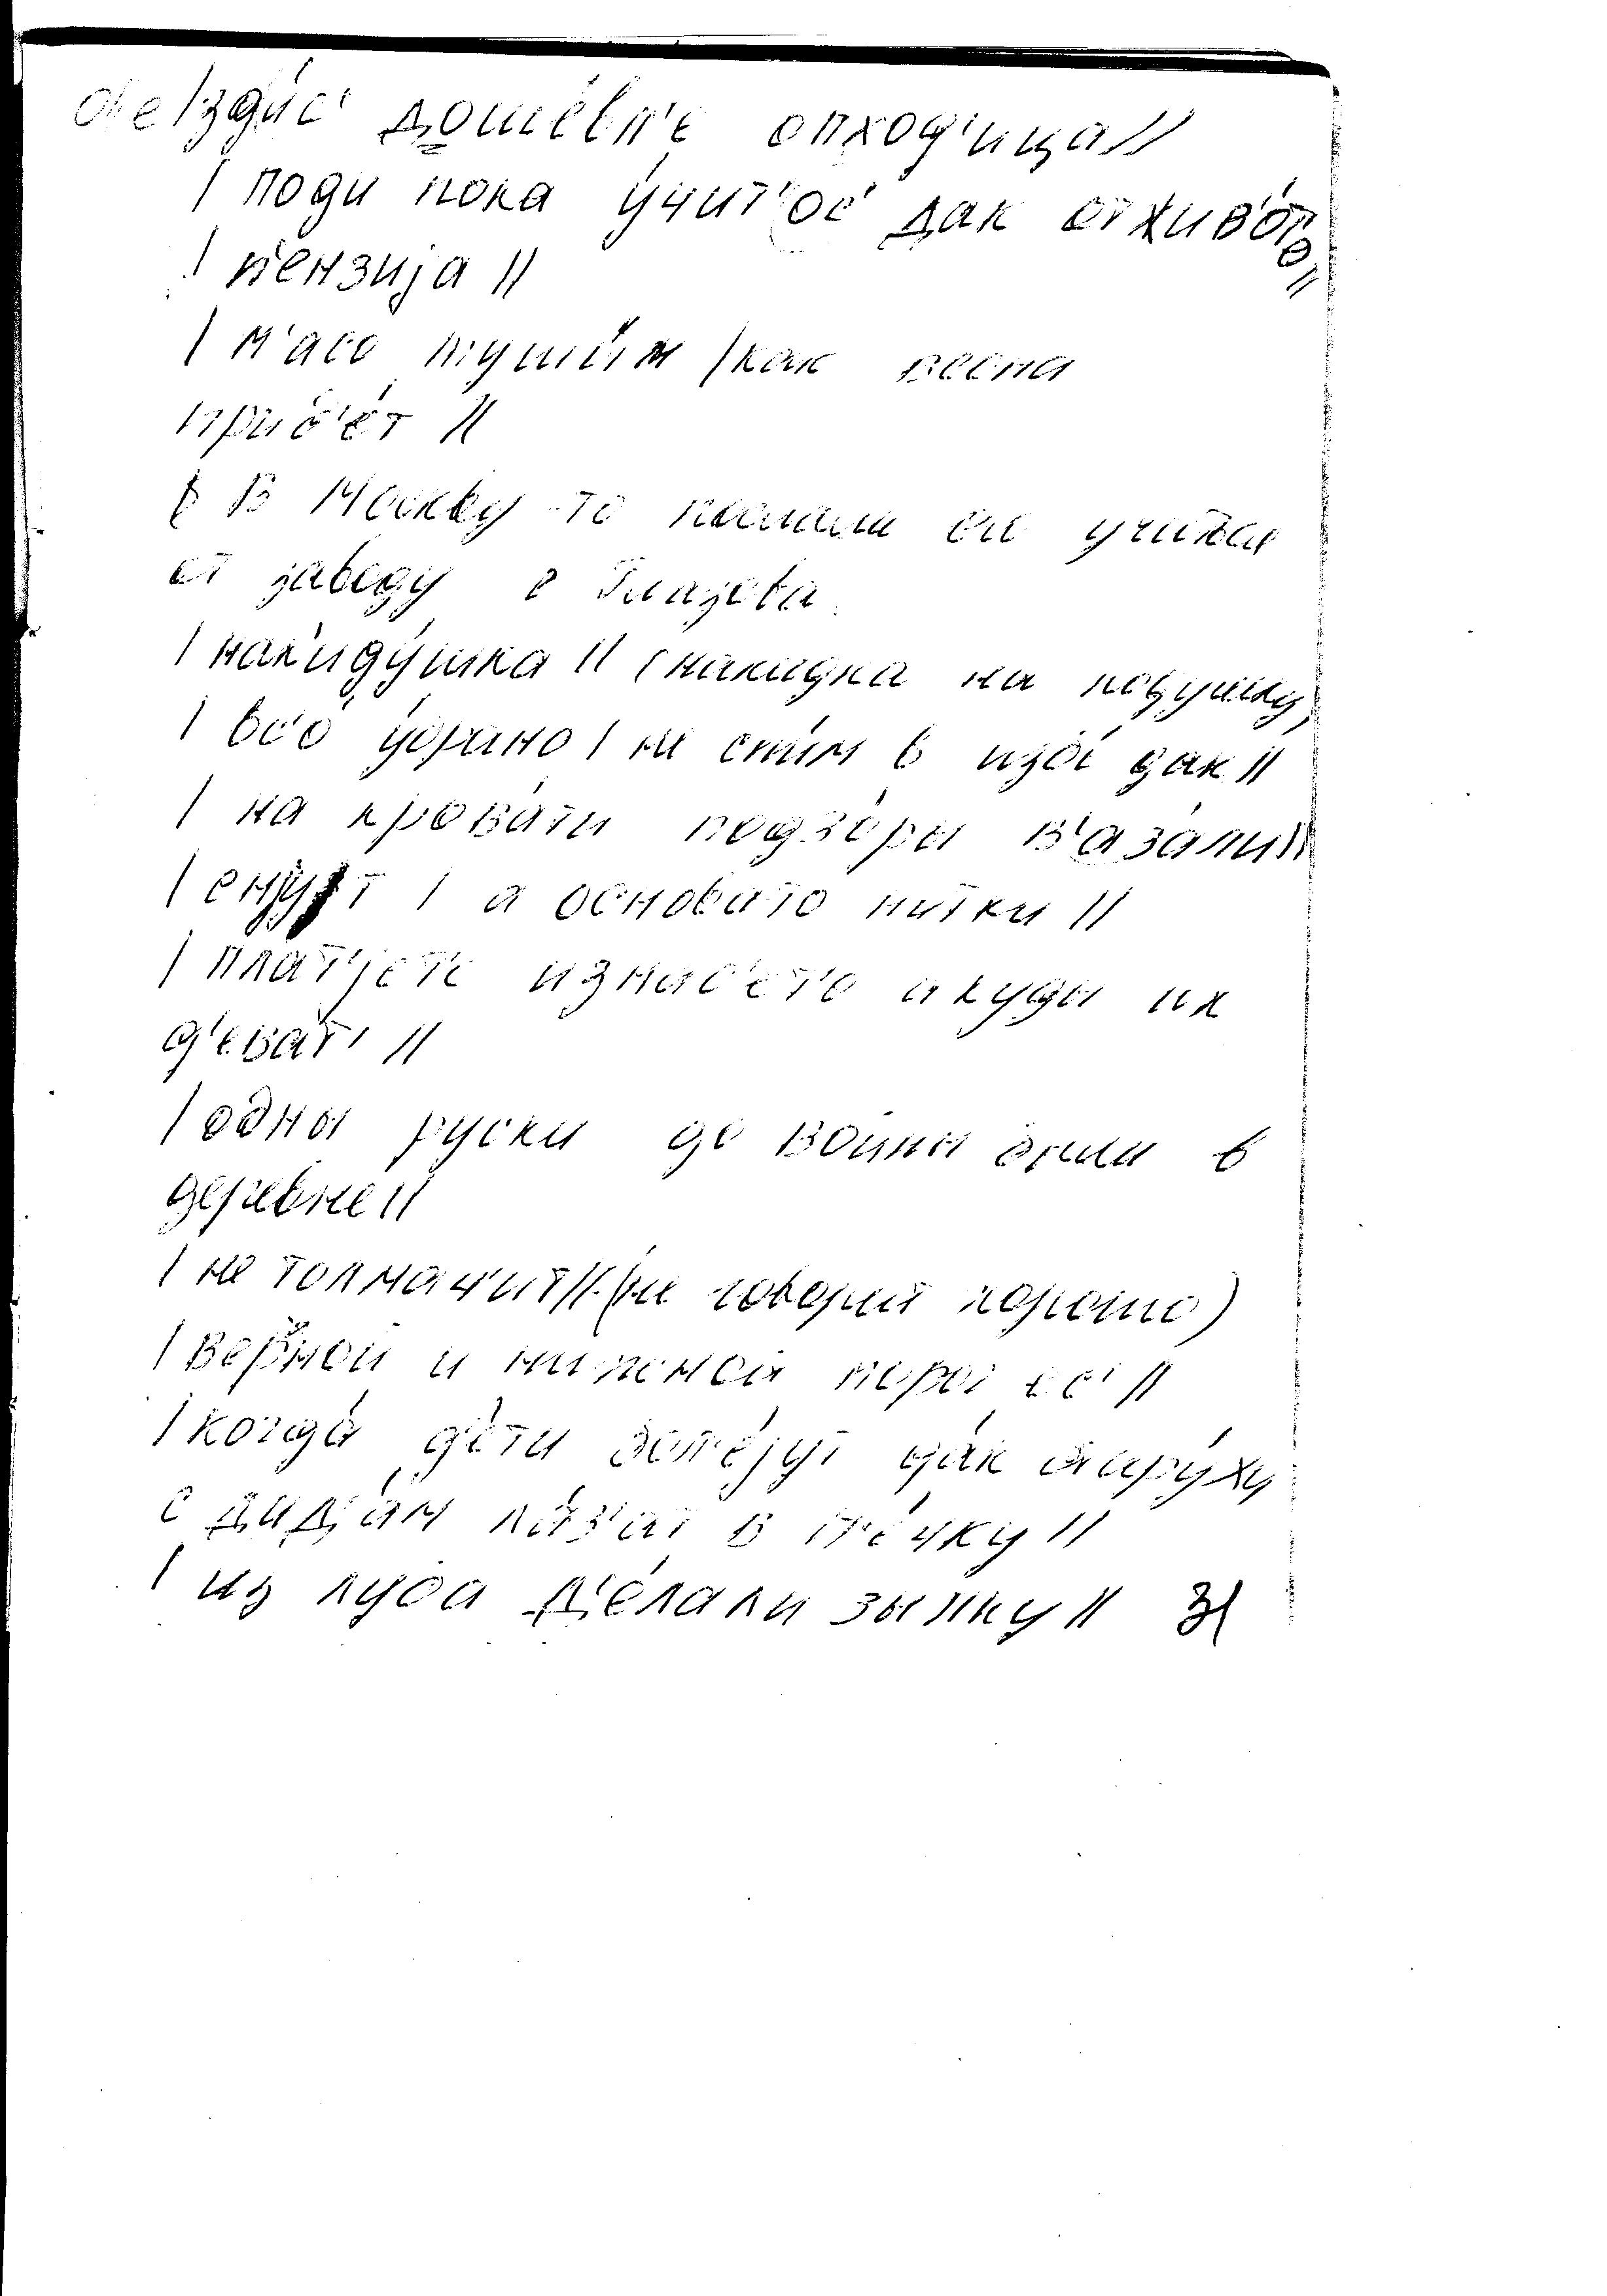 /здис' дошéвл'е опход'ица//
/ поди пока у́чит'ос' дак отжив'óте//
/ п'ензиjа //
/ м'асо тушим / как весна
прид'óт //
/ В Москву-то послали ей учитса
от заводу с Глазова
/ нак'иду́шка // (накидка на подушку)
/ вс'о у́брано / не спим в избе дак //
/ на кровати подзóры в'азáли //
/ снуjут / а основато нитки //
/ плат'jет'е износ'ет'о а куды их
д'еват' //
/ одны руски до войны были в
деревне //
/ не толмач'ит // (не говорит хорошо)
/ верхной и нижной порог ес' //
/ когдá д'éти дак стару́ху
с дидом в п'éчку //
/ из луба д'éлали зыпку // 31